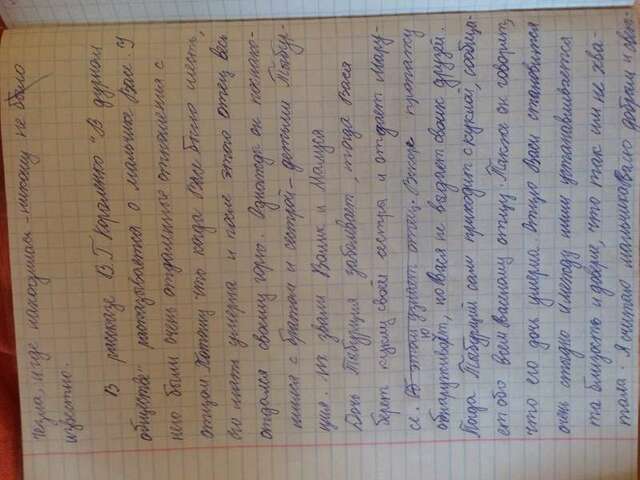 чезла, и где находилась - никому не было
известно.
В рассказе В.Г. Короленко "В дурном
обществе" рассказывается о мальчике Васе. У
него были очень отдаленные отношения с
отцом. Потому что когда Васе было шесть,
его мать умерла и после этого отец весь
отдался своему горю. Однажды он познако-
мился с братом и сестрой - детьми Тыбур-
ция. Их звали Валик и Маруся
Дочь Тыбурция заболевает, тогда Вася
берёт куклу своей сестры и отдаёт Мару-
се. Об этом узнаёт отец. Вскоре пропажу
обнаруживают, но Вася не выдаёт своих друзей.
Тогда Тыбурций сам приходит с куклой, сообща-
ет обо всем Васиному отцу. Также он говорит,
что его дочь умерла. Отцу Васи становится
очень стыдно и между ними устанавливается
та близость и доверие, что так им не хва-
тала. Я считаю мальчика